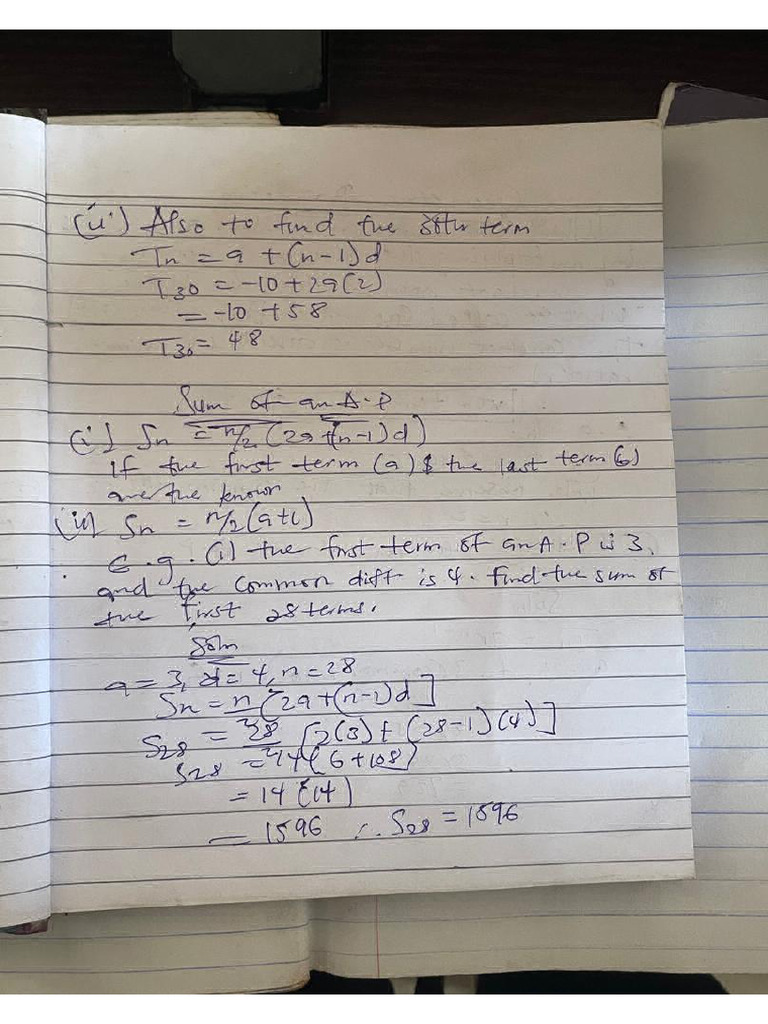 (ii) Also to find the 30th term
Tn = a + (n-1)d
T30 = -10 + 29(2)
= -10 + 58
T30 = 48
Sum of an A.P
(i) Sn = n/2 (2a+(n-1)d)
If the first term (a) & the last term (l)
are the known
(ii) Sn = n/2 (a+l)
E.g. (i) the first term of an A.P is 3,
and the common diff is 4. find the sum of
the first 28 terms.
Soln
a = 3, d = 4, n = 28
Sn = n/2 [2a+(n-1)d]
S28 = 28/2 [2(3) + (28-1)(4)]
S28 = 14(6+108)
= 14 (14)
= 1596 ∴ S28 = 1596